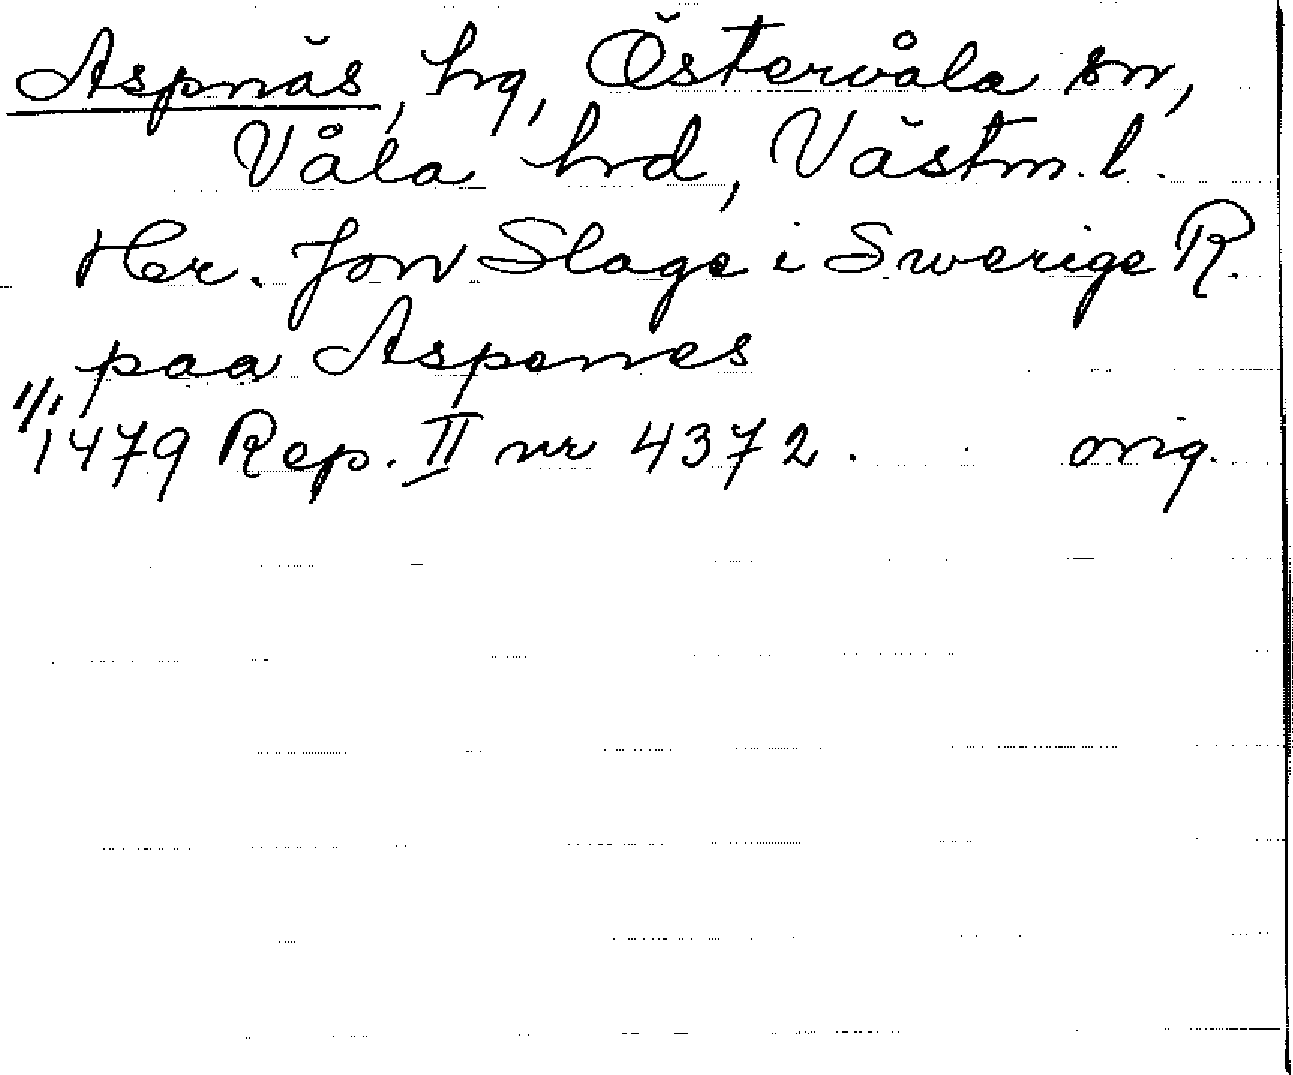 Aspnäs, hg, Östervåla sn,
Våla hrd, Västm. l.
Her. Jon Slage i Swerige R.
paa Aspenes
1/1 1479 Rep. II nr 4372. orig.